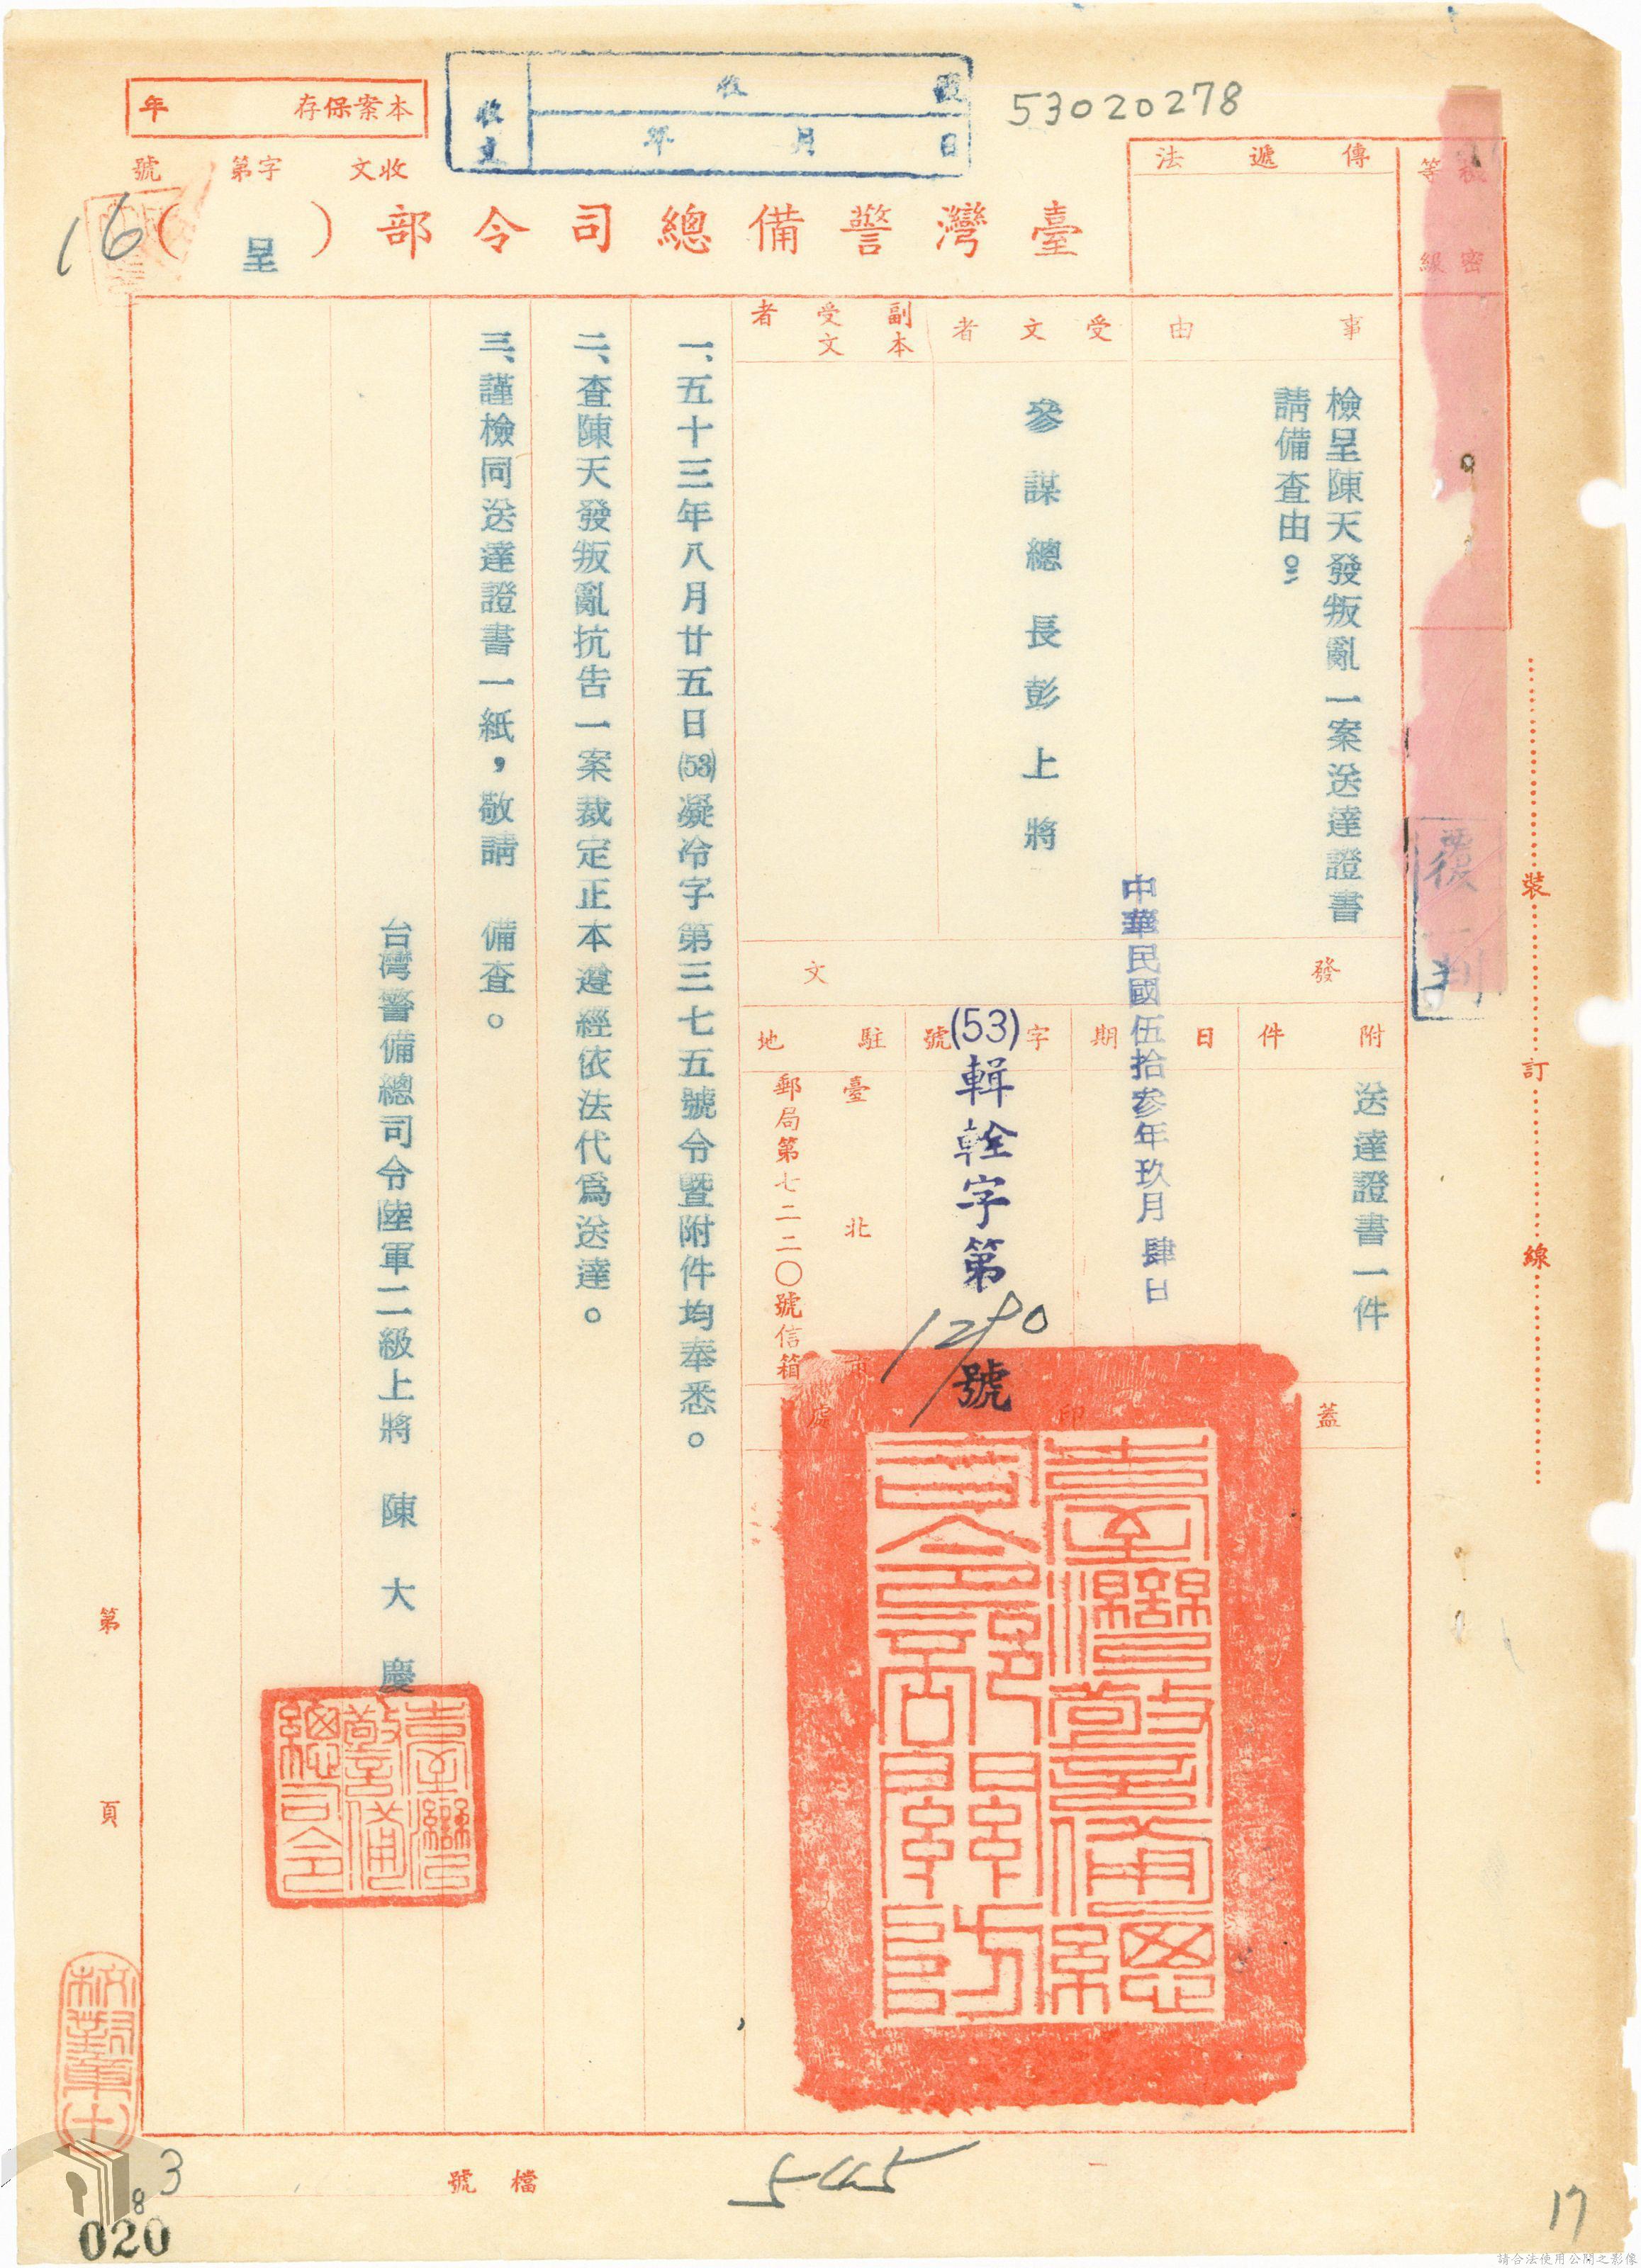 53020278
本案保存 年
收文 字第 號
收文
收 號
年 月 日
16
臺灣警備總司令部(呈)
傳遞法
機密等級
覆判
事由
檢呈陳天發叛亂一案送達證書
請備查由。
受文者
參謀總長彭上將
副本受文者
發文
附件
送達證書一件
日期
中華民國伍拾參年玖月肆日
字號
(53)輯輇字第1290號
駐地
臺北市
郵局第七二二〇號信箱
蓋印處
臺灣警備總司令部關防
一、五十三年八月廿五日(53)凝冷字第三七五號令暨附件均奉悉。
二、查陳天發叛亂抗告一案裁定正本遵經依法代為送達。
三、謹檢同送達證書一紙,敬請 備查。
台灣警備總司令陸軍二級上將 陳大慶
臺灣警備總司令
裝 訂 線
第 頁
檔號
545
3
8
020
17
請合法使用公開之影像